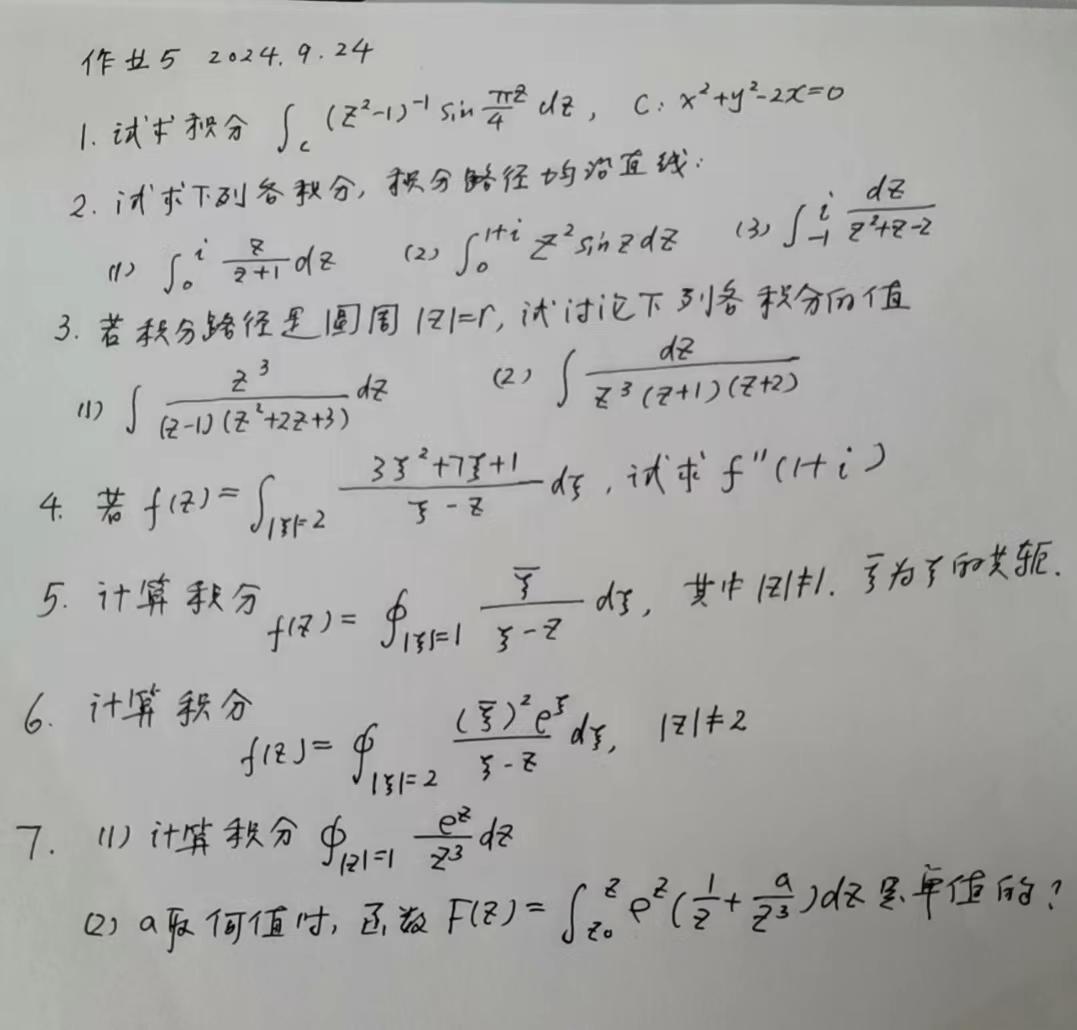 作业5 2024.9.24
1. 试求积分 ∫_c (z²-1)⁻¹ sin πz/4 dz, C: x²+y²-2x=0
2. 试求下列各积分, 积分路径均沿直线:
(1) ∫₀^i z/(z+1) dz (2) ∫₀^{1+i} z² sin z dz (3) ∫₋₁^i dz/(z²+z-2)
3. 若积分路径是圆周 |z|=r, 试讨论下列各积分的值
(1) ∫ z³/((z-1)(z²+2z+3)) dz (2) ∫ dz/(z³(z+1)(z+2))
4. 若 f(z)=∫_{|ξ|=2} (3ξ²+7ξ+1)/(ξ-z) dξ, 试求 f''(1+i)
5. 计算积分 f(z)=∮_{|ξ|=1} ξ̄/(ξ-z) dξ, 其中|z|≠1. ξ̄为ξ的共轭.
6. 计算积分 f(z)=∮_{|ξ|=2} (ξ̄)²e^ξ/(ξ-z) dξ, |z|≠2
7. (1) 计算积分 ∮_{|z|=1} e^z/z³ dz
(2) a取何值时, 函数 F(z)=∫_{z₀}^z e^z(1/z + a/z³)dz 是单值的?